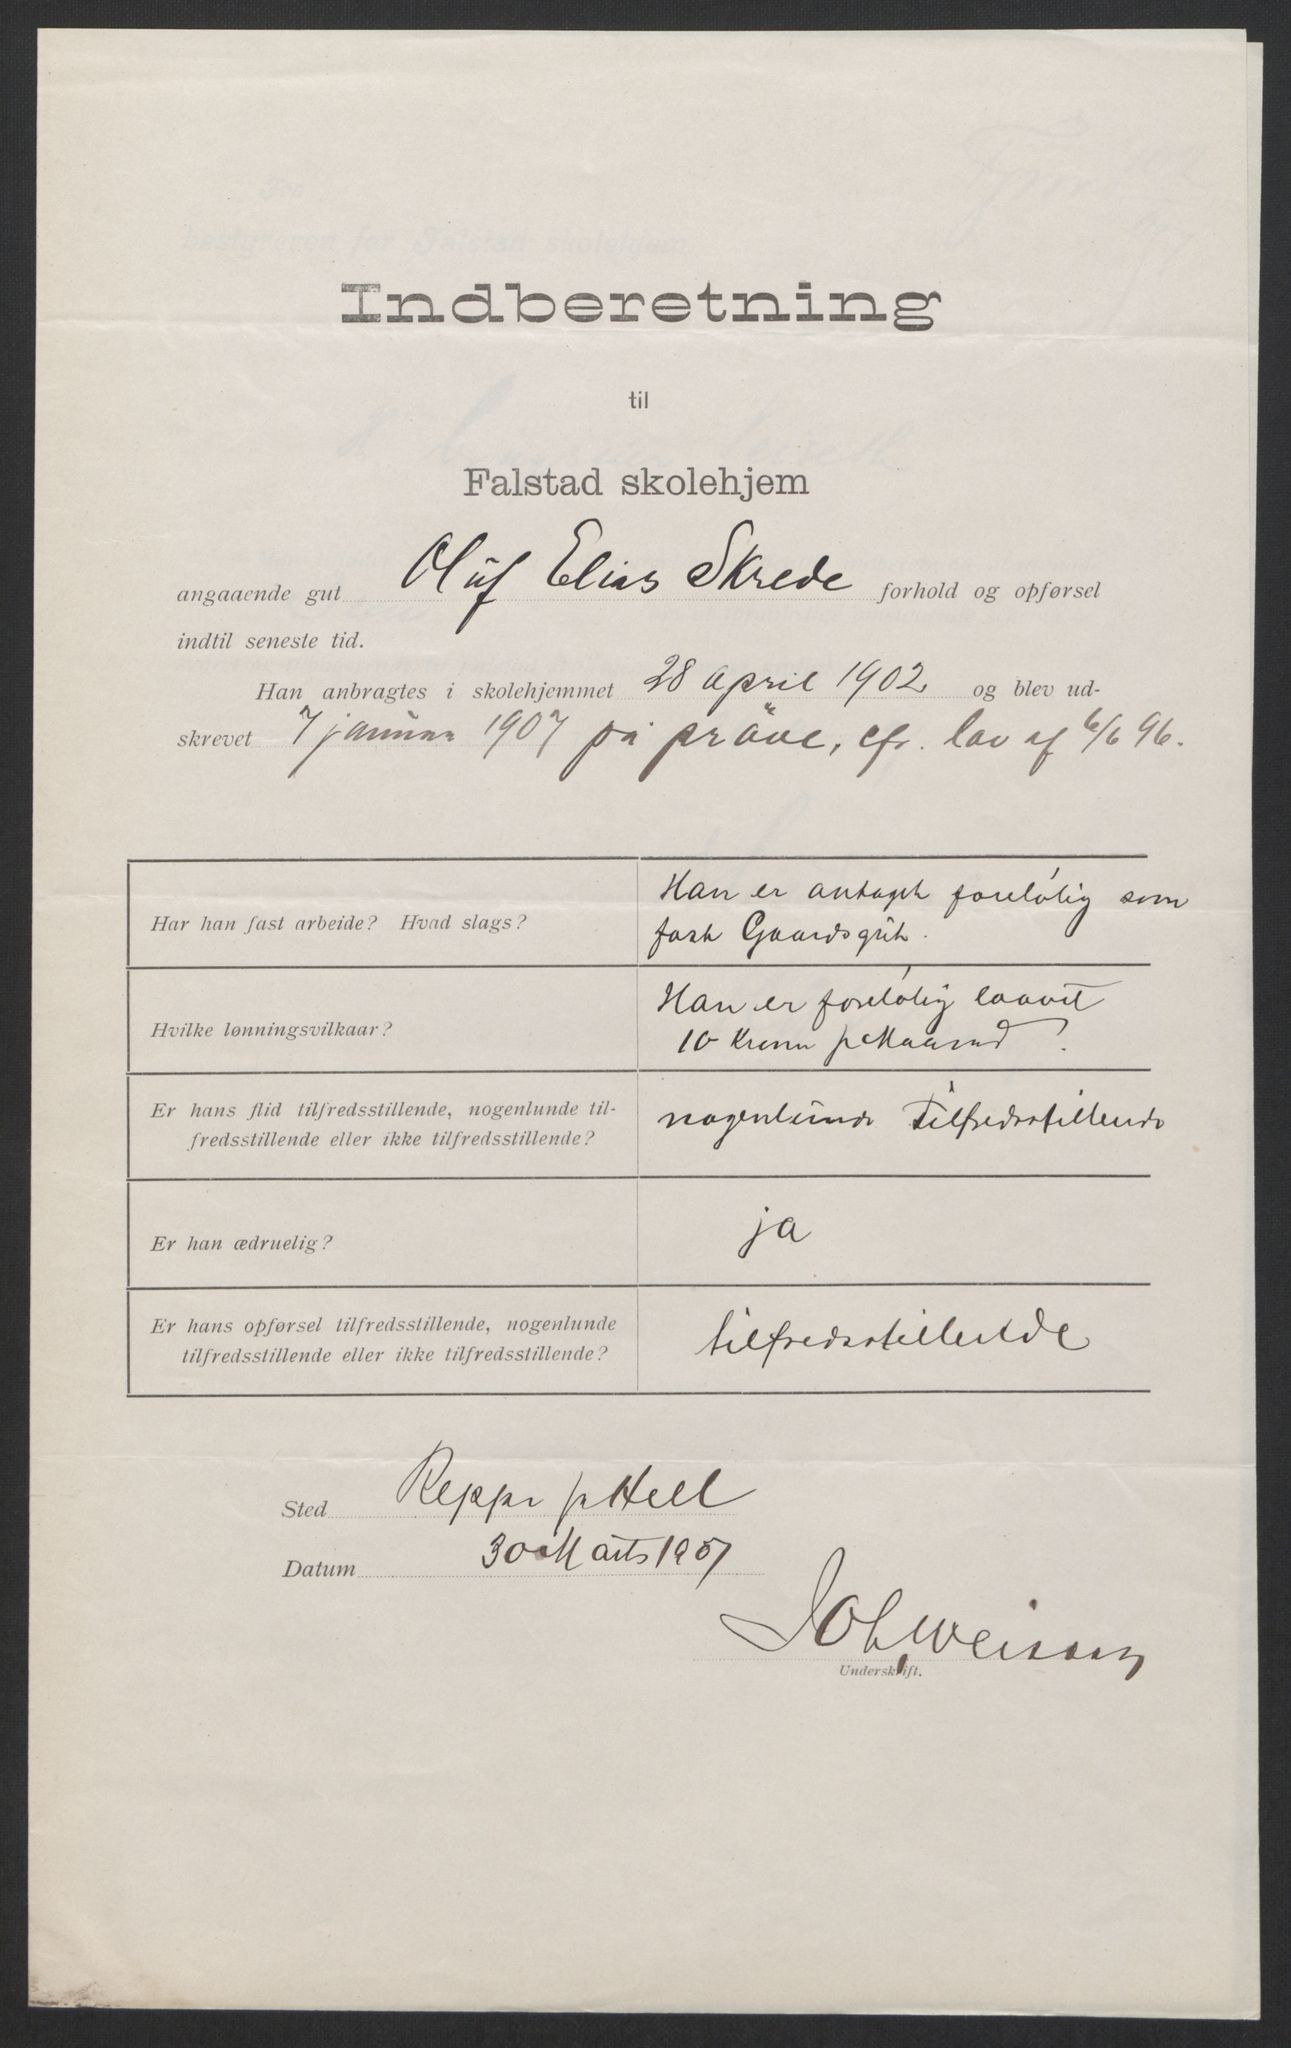 Indberetning
til
Falstad skolehjem
angaaende gut Oluf Elias Skrede forhold og opførsel
indtil seneste tid.
Han anbragtes i skolehjemmet 28 april 1902 og blev ud-
skrevet 7 januar 1907 på pröve, cfr. lov af 6/6 96.
Har han fast arbeide? Hvad slags?
Han er antaget foreløbig som
fast Gaardsgut.
Hvilke lønningsvilkaar?
Han er foreløbig lovet
10 Kroner pr Maaned
Er hans flid tilfredsstillende, nogenlunde til-
fredsstillende eller ikke tilfredsstillende?
nogenlunde Tilfredsstillende
Er han ædruelig?
ja
Er hans opførsel tilfredsstillende, nogenlunde
tilfredsstillende eller ikke tilfredsstillende?
tilfredsstillende
Sted Reppe pr Hell
Datum 30 Marts 1907
Underskrift.